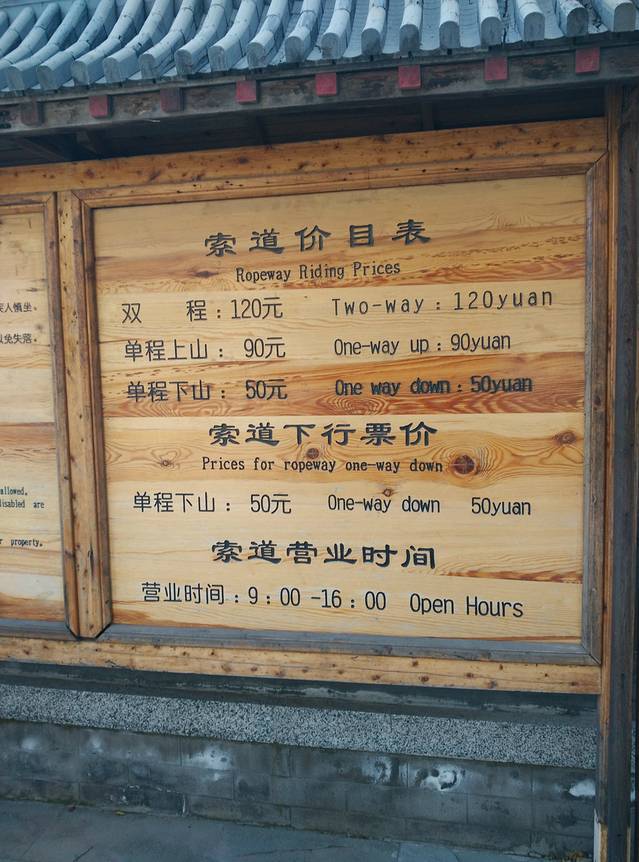 索道价目表
Ropeway Riding Prices
双 程：120元 Two-way：120yuan
单程上山： 90元 One-way up：90yuan
单程下山： 50元 One way down：50yuan
索道下行票价
Prices for ropeway one-way down
单程下山： 50元 One-way down 50yuan
索道营业时间
营业时间：9：00 -16：00 Open Hours
人慎坐。
以免失落。
allowed.
disabled are
property.